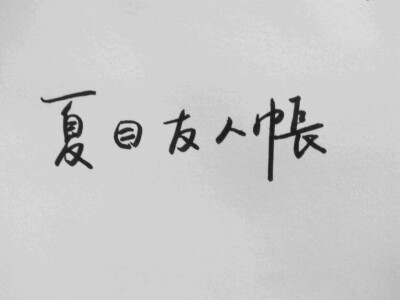 夏目友人帳